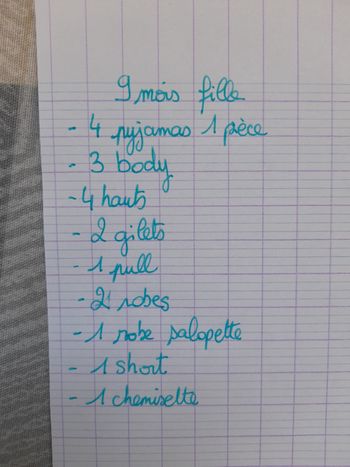 9 mois fille
- 4 pyjamas 1 pièce
- 3 body
- 4 hauts
- 2 gilets
- 1 pull
- 2 robes
- 1 robe salopette
- 1 short
- 1 chemisette